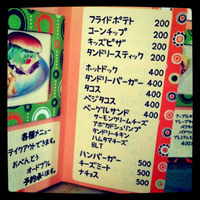 フライドポテト 200
コーンチップ 200
キッズピザ 200
タンドリースティック 200
ホットドック 400
タンドリーバーガー 400
タコス 400
ベジタコス 400
ベーグルサンド 400
サーモンクリームチーズ
アボカドシュリンプ
タンドリーチキン
ハムタマチーズ
BLT
ハンバーガー 500
チーズミート 500
ナチョス 500
各種メニュー
テイクアウトできます。
おべんとう
オードブル
予約承ります。